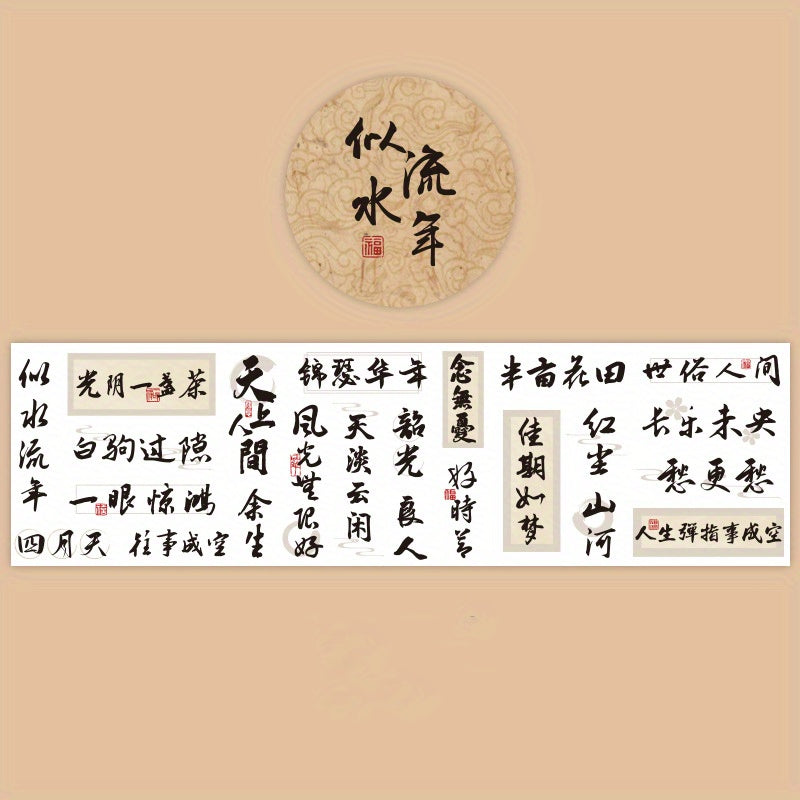 似水
流年
福
似水流年
光阴一盏茶
白驹过隙
一眼惊鸿
四月天
往事成空
天上人間
余生
锦瑟华年
风光無限好
天淡云闲
韶光
良人
念無憂
好時节
半亩花田
佳期如梦
红尘山河
世俗人间
长乐未央
愁更愁
人生弹指事成空